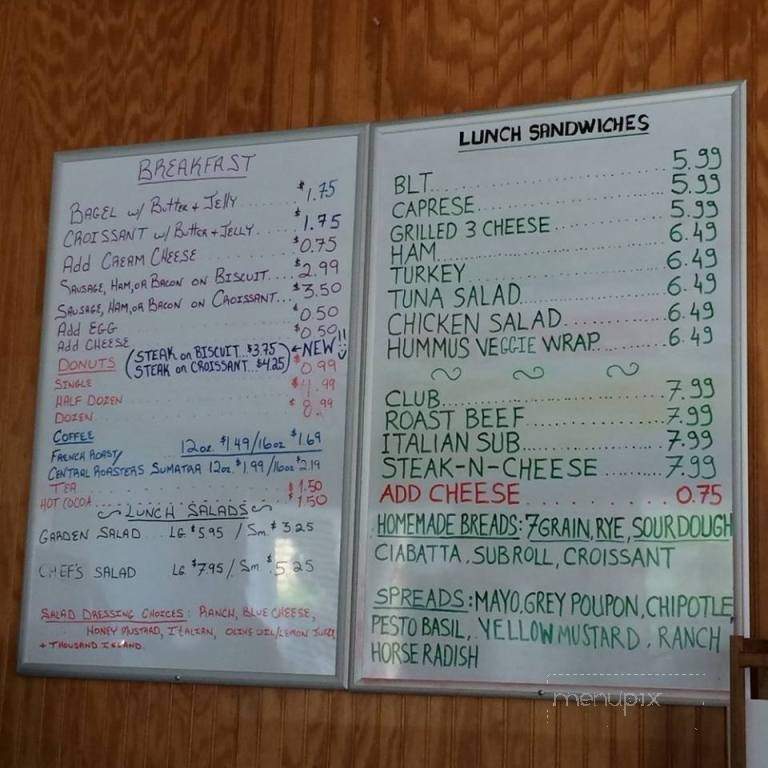 BREAKFAST
BAGEL w/ Butter + Jelly $1.75
CROISSANT w/ Butter + JELLY... $1.75
Add CREAM CHEESE $0.75
SAUSAGE, HAM, OR BACON ON BISCUIT.... $2.99
SAUSAGE, HAM, OR BACON ON CROISSANT... $3.50
Add EGG $0.50
Add CHEESE $0.50
(STEAK on BISCUIT...$3.75) ← NEW!!
(STEAK on CROISSANT...$4.25)
DONUTS
SINGLE $0.99
HALF DOZEN $4.99
DOZEN 8.
COFFEE
FRENCH ROAST/ 12oz. $1.49/16oz $1.69
CENTRAL ROASTERS SUMATRA 12oz. $1.99/16oz $2.19
TEA $1.50
HOT COCOA $1.50
LUNCH SALADS
GARDEN SALAD LG $5.95 / Sm. $3.25
CHEF'S SALAD LG $7.95/ Sm $5.25
SALAD DRESSING CHOICES: RANCH, BLUE CHEESE,
HONEY MUSTARD, ITALIAN, OLIVE OIL/LEMON JUICE,
+ THOUSAND ISLAND.
LUNCH SANDWICHES
BLT 5.99
CAPRESE 5.99
GRILLED 3 CHEESE 5.99
HAM 6.49
TURKEY 6.49
TUNA SALAD 6.49
CHICKEN SALAD 6.49
HUMMUS VEGGIE WRAP 6.49
CLUB 7.99
ROAST BEEF 7.99
ITALIAN SUB 7.99
STEAK-N-CHEESE 7.99
ADD CHEESE 0.75
HOMEMADE BREADS: 7GRAIN, RYE, SOURDOUGH
CIABATTA, SUBROLL, CROISSANT
SPREADS: MAYO, GREY POUPON, CHIPOTLE
PESTO BASIL, YELLOW MUSTARD, RANCH
HORSE RADISH
menupix